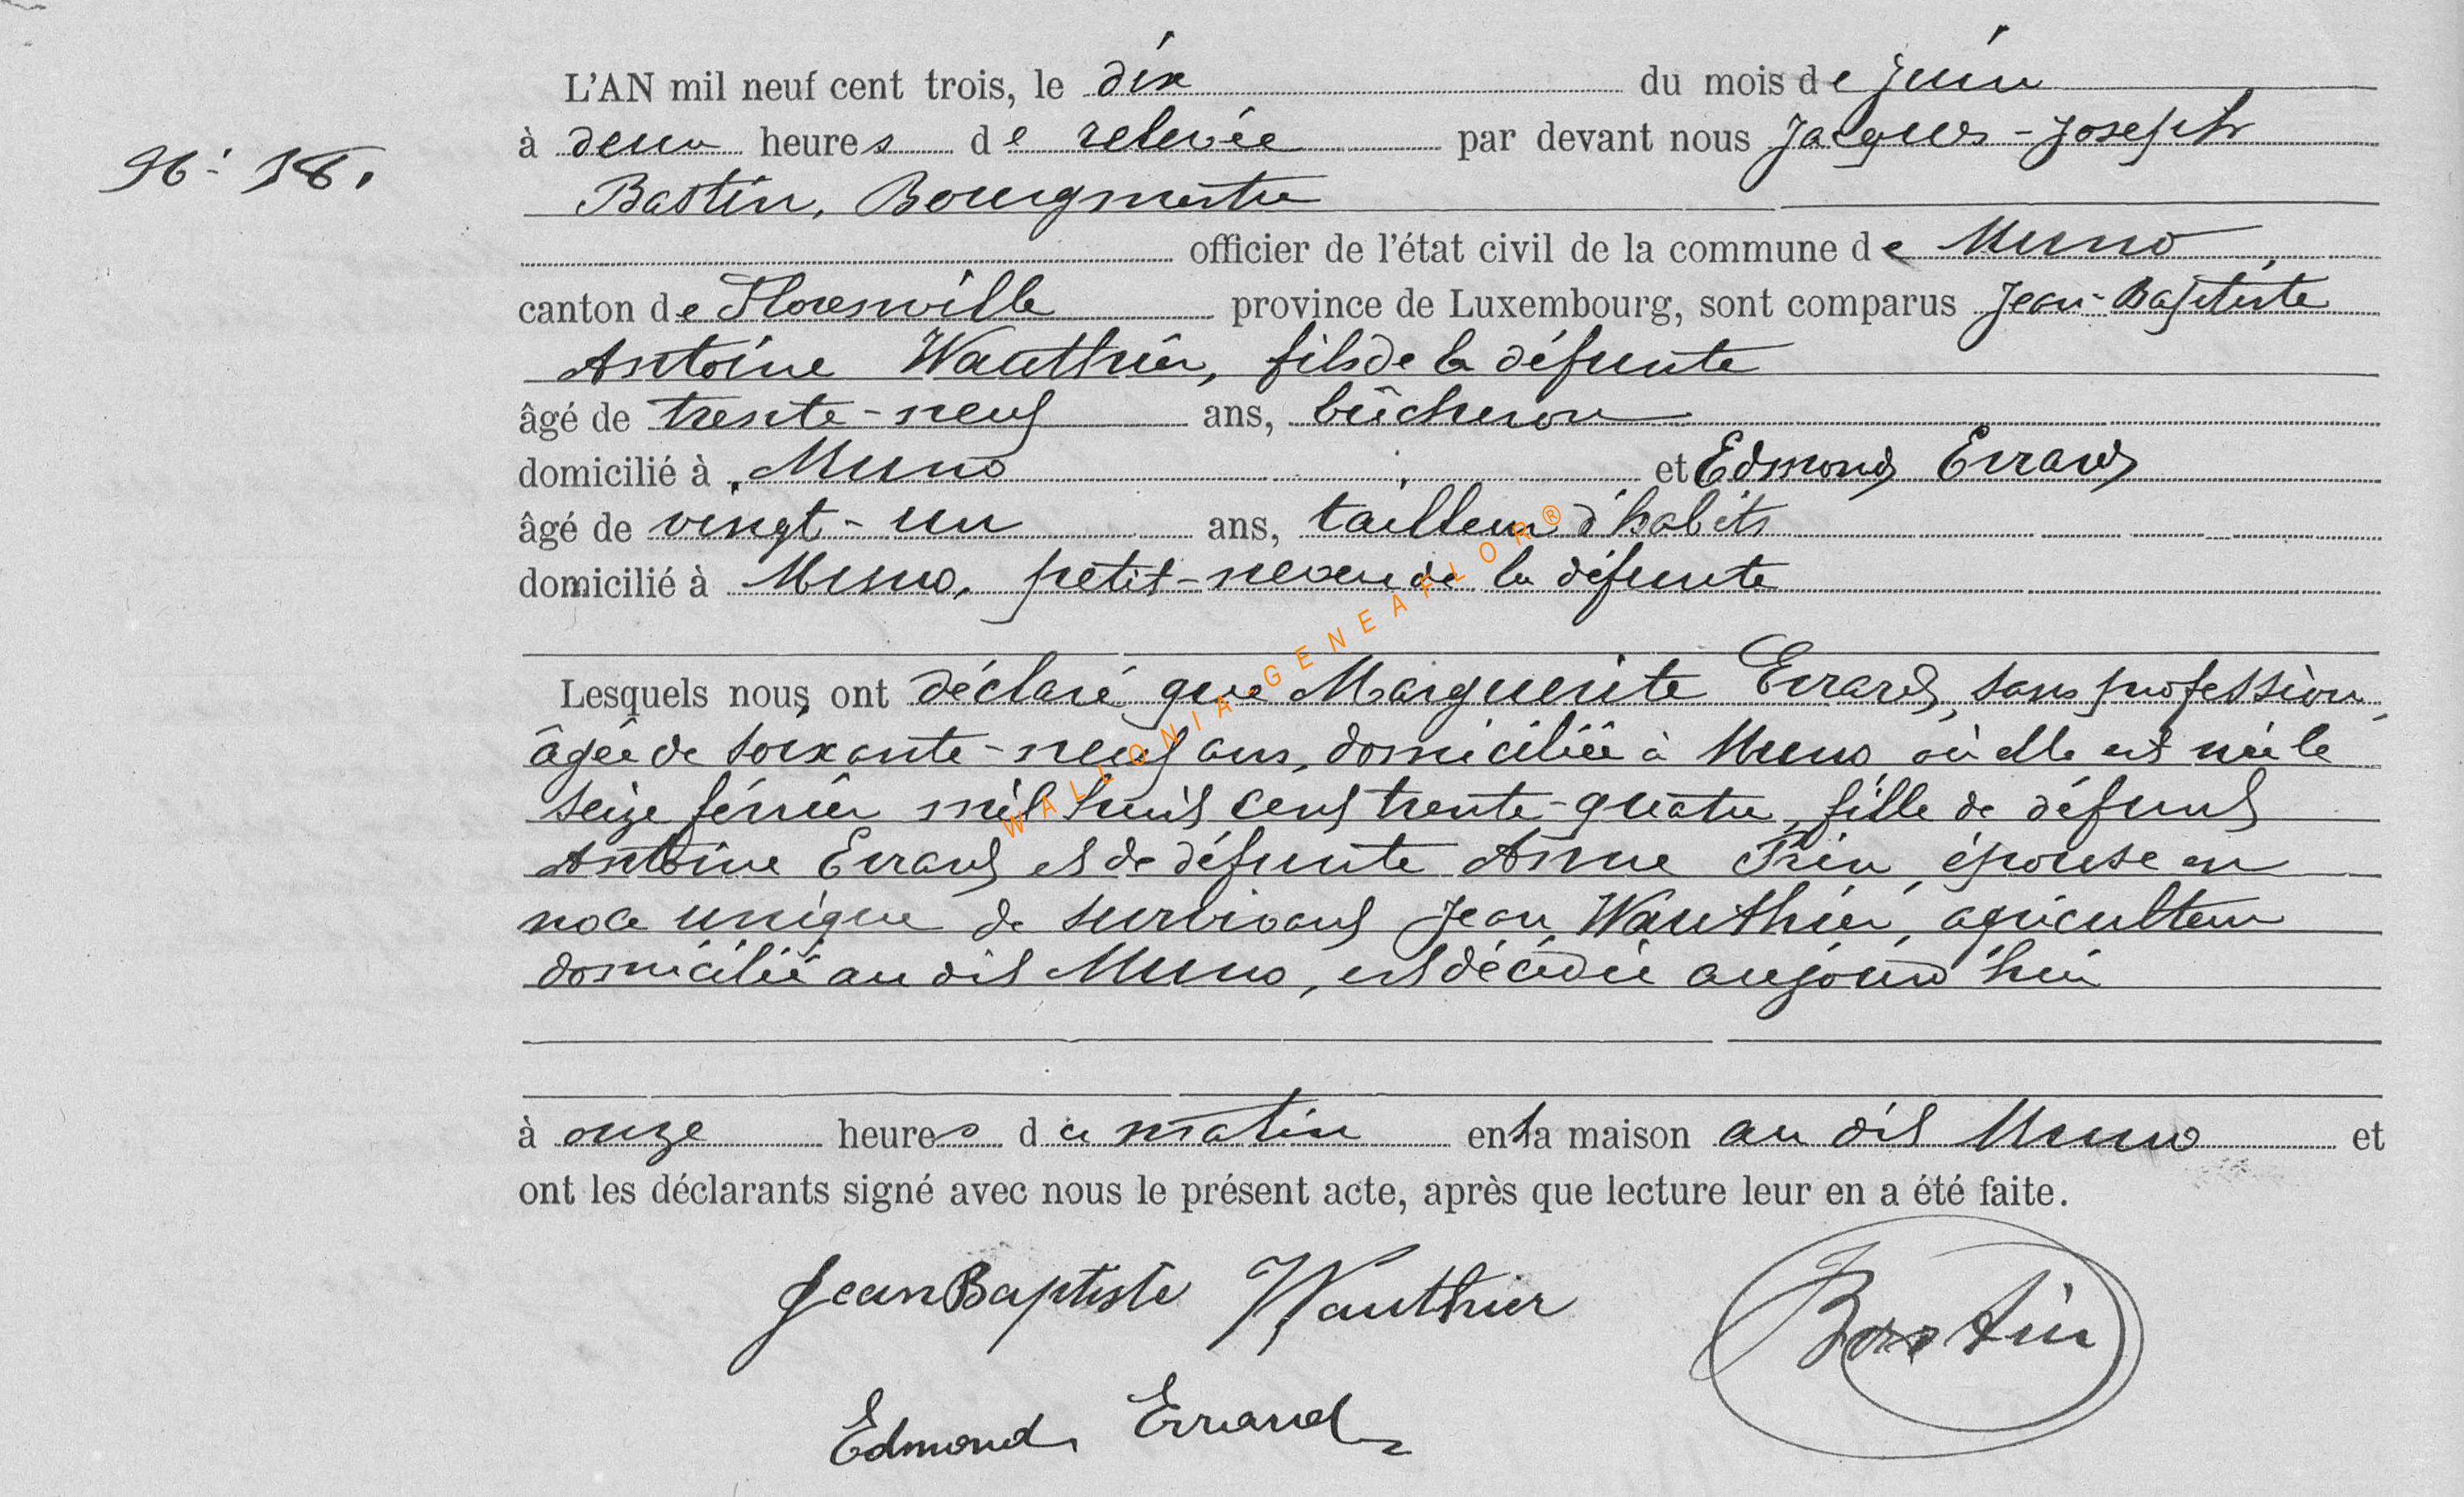 L'AN mil neuf cent trois, le dix du mois de juin
à deux heures de relevée par devant nous Jacques-Joseph
N° 18.
Bastin, Bourgmestre
officier de l'état civil de la commune de Muno,
canton de Florenville province de Luxembourg, sont comparus Jean-Baptiste
Antoine Wauthier, fils de la défunte
âgé de trente-neuf ans, bûcheron
domicilié à Muno et Edmond Errard
âgé de vingt-un ans, tailleur d'habits
domicilié à Muno, petit-neveu de la défunte
Lesquels nous ont déclaré que Marguerite Errard, sans profession,
âgée de soixante-neuf ans, domiciliée à Muno où elle est née le
seize février mil huit cent trente-quatre, fille de défunt
Antoine Errard et de défunte Anne Prin, épouse en
noce unique de survivant Jean Wauthier, agriculteur
domicilié au dit Muno, est décédée aujourd'hui
à onze heures du matin en sa maison au dit Muno et
ont les déclarants signé avec nous le présent acte, après que lecture leur en a été faite.
Jean Baptiste Wauthier
Bastin
Edmond Errard
WALLONIA-GENEAFLOR®